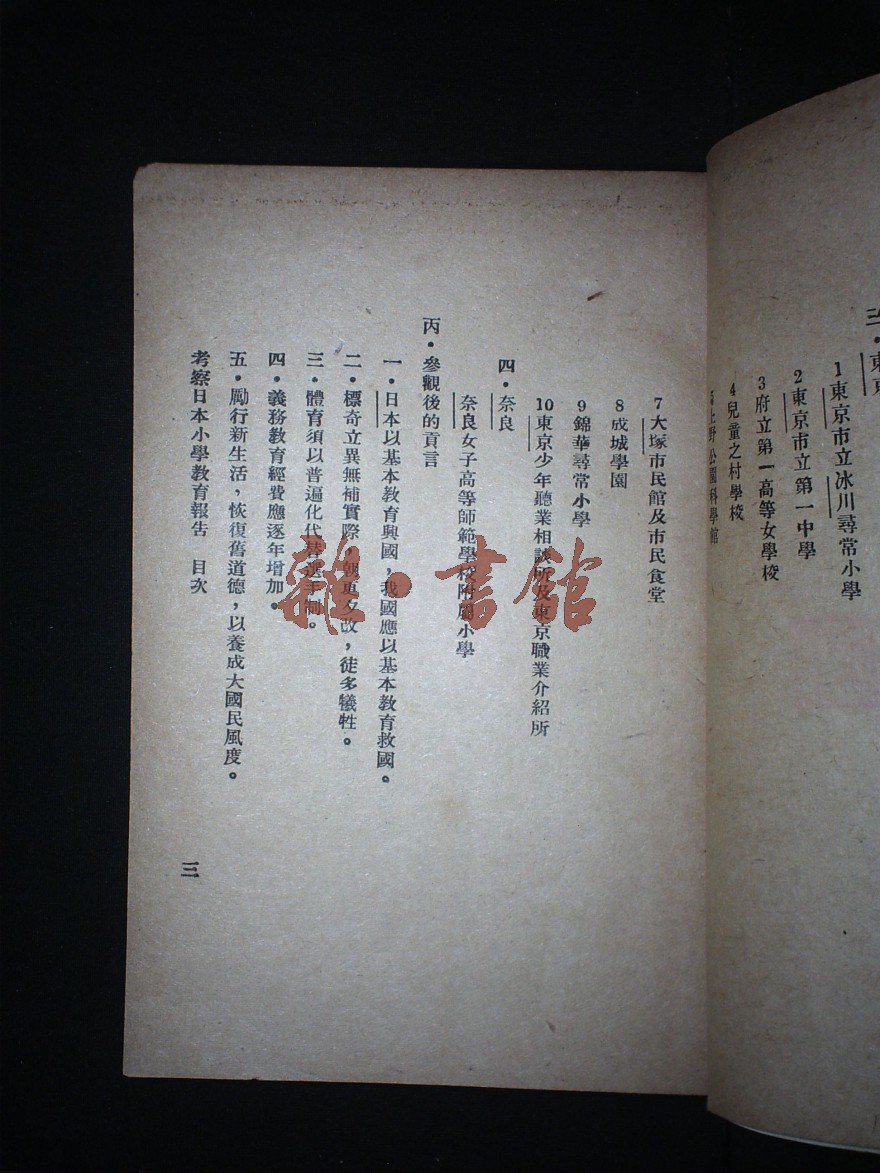 三・東京
1東京市立冰川尋常小學
2東京市立第一中學
3府立第一高等女學校
4兒童之村學校
5上野公園科學館
7大塚市民館及市民食堂
8成城學園
9錦華尋常小學
10東京少年聽業相談所及東京職業介紹所
四・奈良
奈良女子高等師範學校附屬小學
丙・參觀後的貢言
一・日本以基本教育興國，我國應以基本教育救國。
二・標奇立異無補實際，朝更夕改，徒多犧牲。
三・體育須以普遍化代替選手制。
四・義務教育經費應逐年增加。
五・勵行新生活，恢復舊道德，以養成大國民風度。
考察日本小學教育報告 目次
三
雜・書館